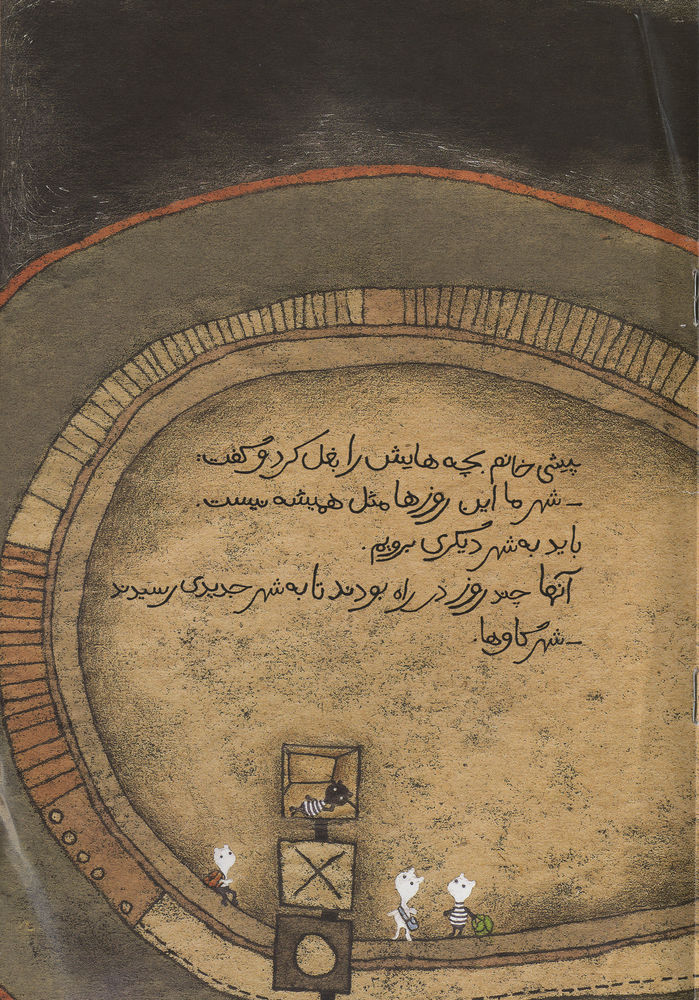 پیشی خانم بچه هایش را بغل کرد و گفت:
ـ شهر ما این روزها مثل همیشه نیست.
باید به شهر دیگری برویم.
آنها چند روز در راه بودند تا به شهر جدیدی رسیدند
ـ شهر گاوها.